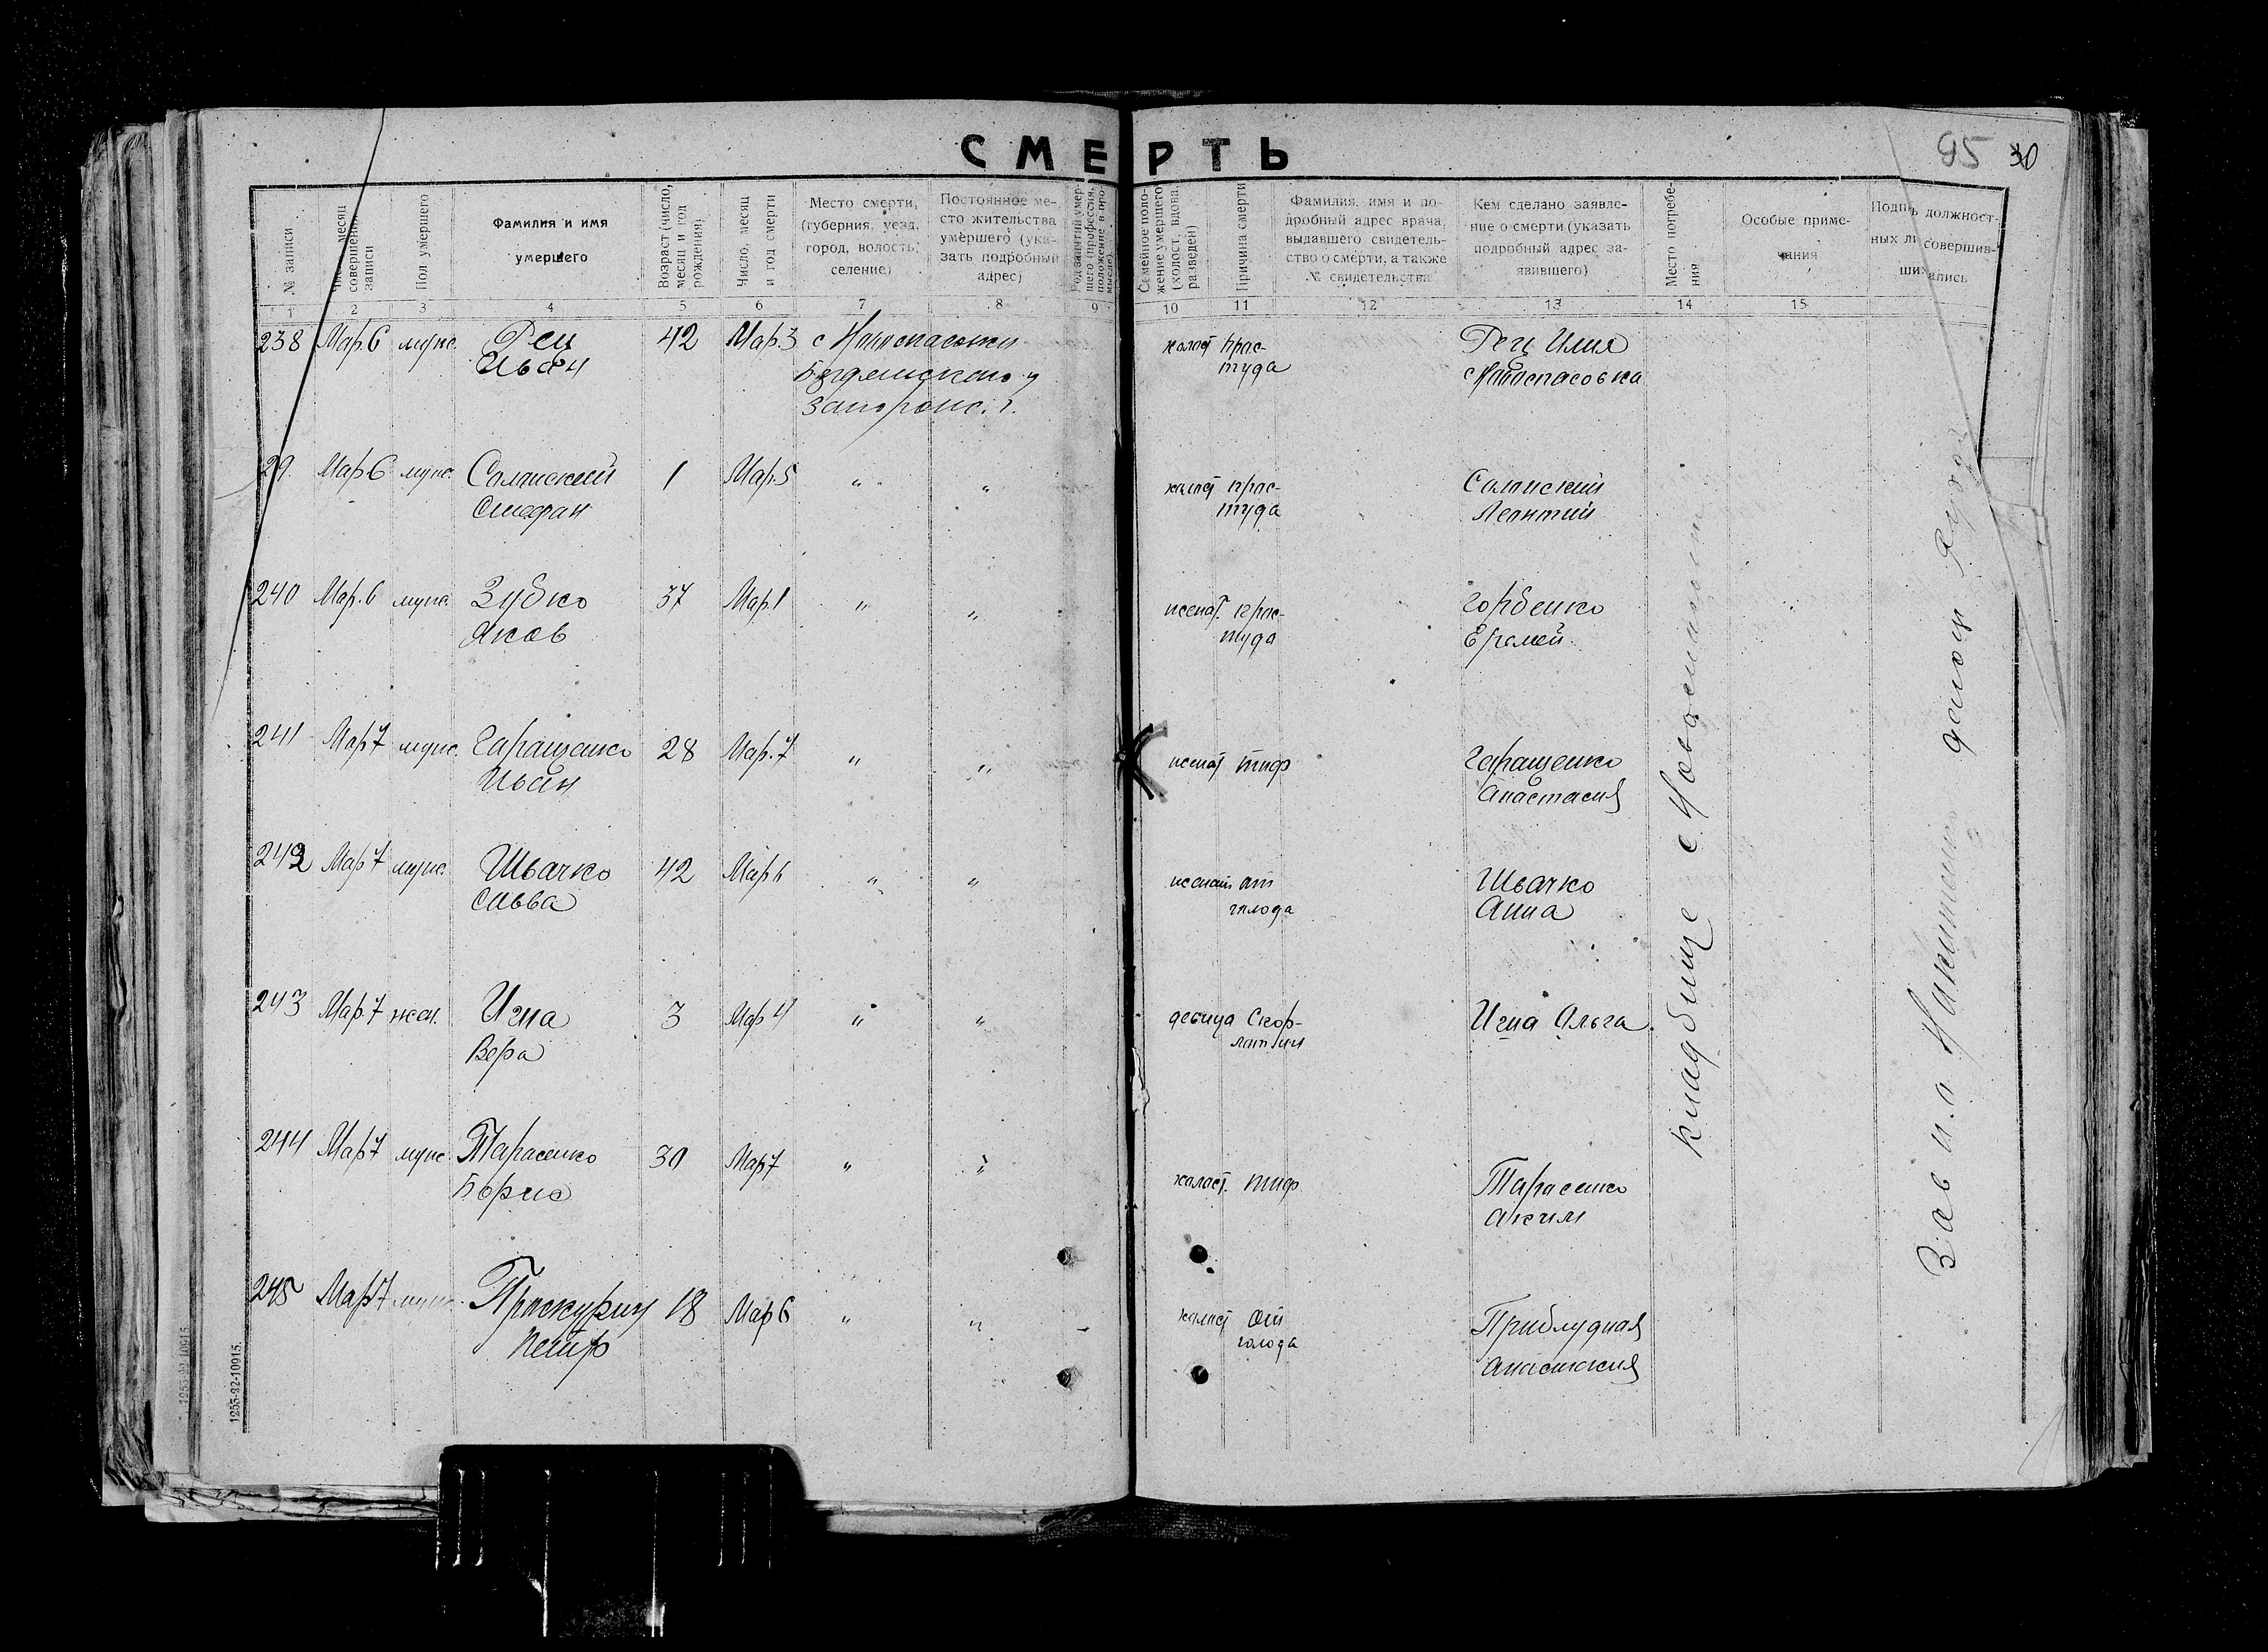 СМЕРТЬ
95 30
№ записи
месяц совершения записи
Пол умершего
Фамилия и имя умершего
Возраст (число, месяц и год рождения)
Число, месяц и год смерти
Место смерти, (губерния, уезд, город, волость, селение)
Постоянное место жительства умершего (указать подробный адрес)
Род занятий умершего (профессия, положение в промысле)
Семейное положение умершего (холост, вдова, разведен)
Причина смерти
Фамилия, имя и подробный адрес врача, выдавшего свидетельство о смерти, а также № свидетельства
Кем сделано заявление о смерти (указать подробный адрес заявившего)
Место погребения
Особые примечания
Подпь должностных ли совершивших апись
1 2 3 4 5 6 7 8 9 10 11 12 13 14 15
238 Мар. 6 муж. Рец 42 Мар. 3 с
Иван
Запорож. г.
холост прос-
туда
Рец Илия
с Новоспасовка
29. Мар 6 муж. 1 Мар. 5 " "
Стефан
холост прос-
туда
Леонтий
240 Мар. 6 муж. Зубко 37 Мар. 1 " "
Яков
женат. прос-
туда
Горбенко
Еремей
241 Мар 7 муж. Гаращенко 28 Мар. 7 " "
Иван
женат тиф
Геращенко
Анастасия
242 Мар 7 муж. Швачко 42 Мар 6 " "
Савва
женат от
голода
Швачко
Анна
243 Мар. 7 жен. Игна 3 Мар 4 " "
Вера
девица Скор-
латин
Игна Ольга
244 Мар 7 муж Тарасенко 30 Мар 7 " "
Борис
холост. тиф
Тарасенко
Аким
245 Мар 7 муж. Проскурин 18 Мар 6 " "
Петр
холост от
голода
Приблудная
Анастасия
кладбище с.
Зав п.о
1255-22-10915.
1255-22-10915